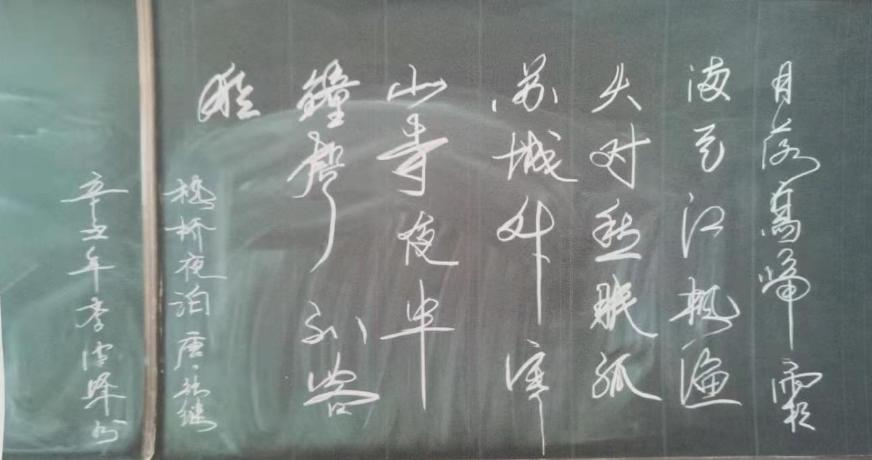 月落烏啼霜
满天江枫渔
火对愁眠孤
苏城外寒
山寺夜半
鐘声到客
船
枫桥夜泊 唐·张继
辛丑年李峰书